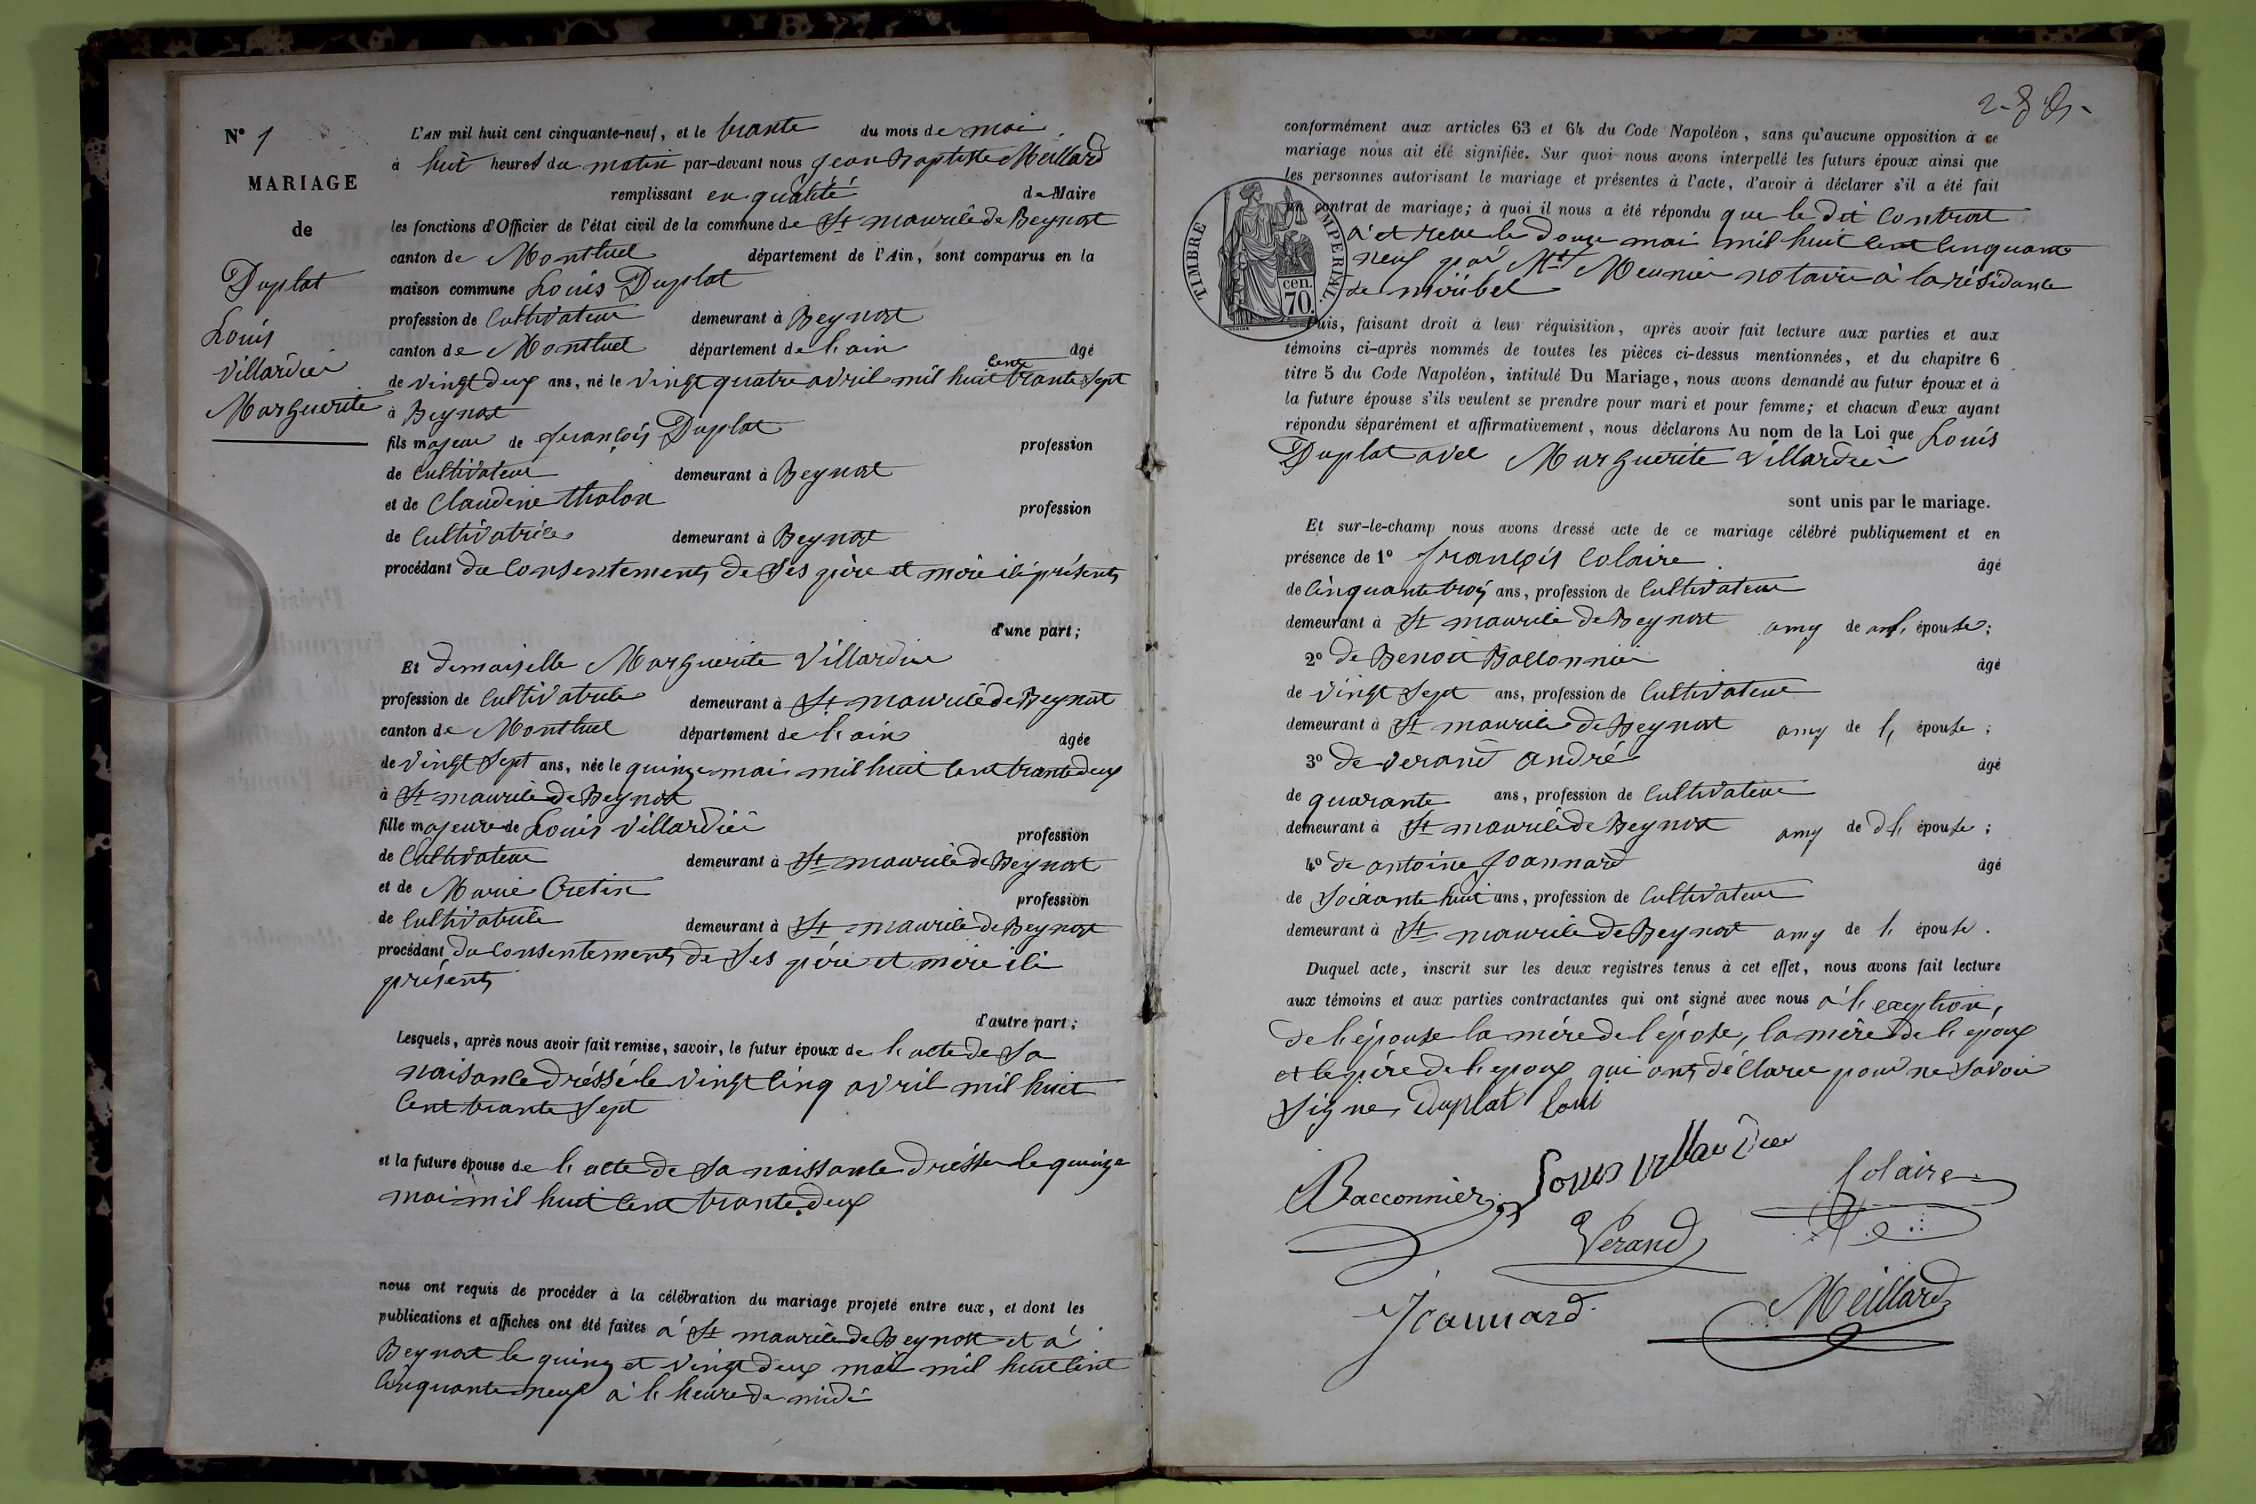 N° 1
MARIAGE
de
Duplat
Louis
Villardier
Marguerite
L'AN mil huit cent cinquante-neuf, et le trante du mois de mai
à huit heures du matin par-devant nous Jean Baptiste Meillard
remplissant en qualité de Maire
les fonctions d'Officier de l'état civil de la commune de St maurice de Beynost
canton de Montluel département de l'Ain, sont comparus en la
maison commune Louis Duplat
profession de Cultivateur demeurant à Beynost
canton de Montluel département de l'ain âgé
de vingt deux ans, né le vingt quatre avril mil huit cent trante sept
à Beynost
fils majeur de françois Duplat profession
de Cultivateur demeurant à Beynost
et de Claudine thalon profession
de Cultivatrice demeurant à Beynost
procédant du Consentement de ses père et mère ici présents
d'une part;
Et demoiselle Marguerite Villardier
profession de Cultivatrice demeurant à St maurice de Beynost
canton de Montluel département de l'ain âgée
de vingt sept ans, née le quinze mai mil huit cent trante deux
à St maurice de Beynost
fille majeure de Louis Villardier profession
de Cultivateur demeurant à St maurice de Beynost
et de Marie Cretin profession
de Cultivatrice demeurant à St maurice de Beynost
procédant du consentement de ses père et mère ici
présents
d'autre part;
Lesquels, après nous avoir fait remise, savoir, le futur époux de l'acte de sa
naisance dréssé le vingt cinq avril mil huit
Cent trante sept
et la future épouse de l'acte de sa naissance dréssée le quinze
mai mil huit cent trante deux
nous ont requis de procéder à la célébration du mariage projeté entre eux, et dont les
publications et affiches ont été faites à St maurice de Beynost et à
Beynost le quinz et vingt deux mai mil huit cent
cinquante neuf à l'heure de midi
conformément aux articles 63 et 64 du Code Napoléon, sans qu'aucune opposition à ce
mariage nous ait été signifiée. Sur quoi nous avons interpellé les futurs époux ainsi que
les personnes autorisant le mariage et présentes à l'acte, d'avoir à déclarer s'il a été fait
un contrat de mariage; à quoi il nous a été répondu que le dit Contrat
TIMBRE IMPERIAL
cen. 70.
a et recu le douze mai mil huit cent cinquante
neuf par Mt Meunier notaire à la résidance
de miribel
Puis, faisant droit à leur réquisition, après avoir fait lecture aux parties et aux
témoins ci-après nommés de toutes les pièces ci-dessus mentionnées, et du chapitre 6
titre 5 du Code Napoléon, intitulé Du Mariage, nous avons demandé au futur époux et à
la future épouse s'ils veulent se prendre pour mari et pour femme; et chacun d'eux ayant
répondu séparément et affirmativement, nous déclarons Au nom de la Loi que Louis
Duplat avec Marguerite Villardier
sont unis par le mariage.
Et sur-le-champ nous avons dressé acte de ce mariage célébré publiquement et en
présence de 1° françois Colaire âgé
de cinquante trois ans, profession de Cultivateur
demeurant à St maurice de Beynost amy de l' épouse;
2° de Benoit Bacconnier âgé
de vingt sept ans, profession de Cultivateur
demeurant à St maurice de Beynost amy de l' épouse;
3° de verand andré âgé
de quarante ans, profession de Cultivateur
demeurant à St maurice de Beynost amy de l' épouse;
4° de antoine Joannard âgé
de soixante huit ans, profession de Cultivateur
demeurant à St maurice de Beynost amy de l' épouse.
Duquel acte, inscrit sur les deux registres tenus à cet effet, nous avons fait lecture
aux témoins et aux parties contractantes qui ont signé avec nous à l'exeption,
de l'épouse la mère de l'épose, la mère de l'epoux
et le père de l'epoux qui ont déclaree pour ne savoir
signer Duplat Loui
Bacconnier Louis villardier Colaire
Verand
Joannard Meillard